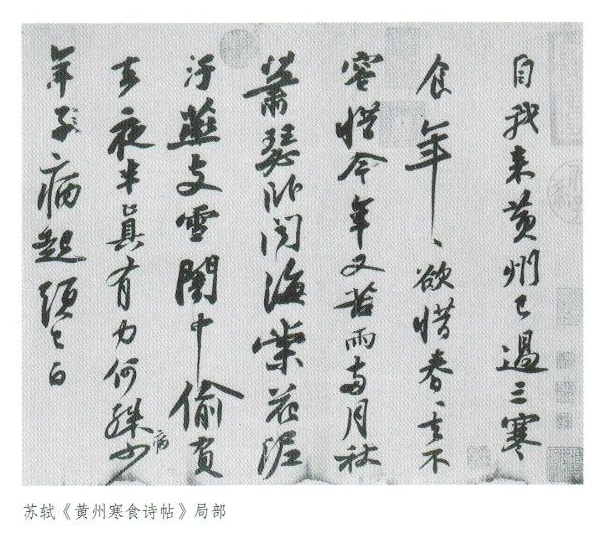 自我来黄州已過三寒
食年〻欲惜春〻去不
容惜今年又苦雨兩月秋
蕭瑟卧聞海棠花泥
汙燕支雪闇中偷負
去夜半真有力何殊病少
年子病起頭已白
苏轼《黄州寒食诗帖》局部